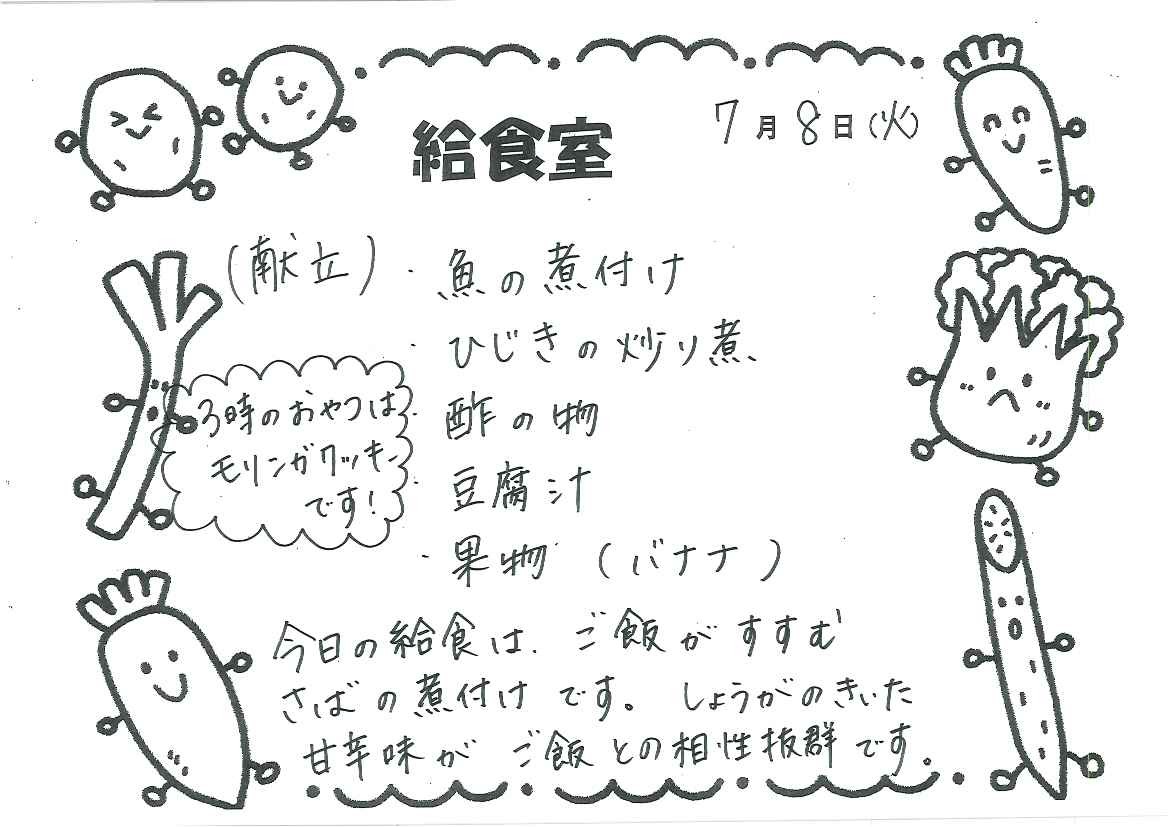 給食室
7月8日(火)
(献立)
・魚の煮付け
・ひじきの炒り煮
・酢の物
・豆腐汁
・果物 (バナナ)
3時のおやつは
モリンガクッキー
です!
今日の給食は、ご飯がすすむ
さばの煮付けです。しょうがのきいた
甘辛味がご飯との相性抜群です。